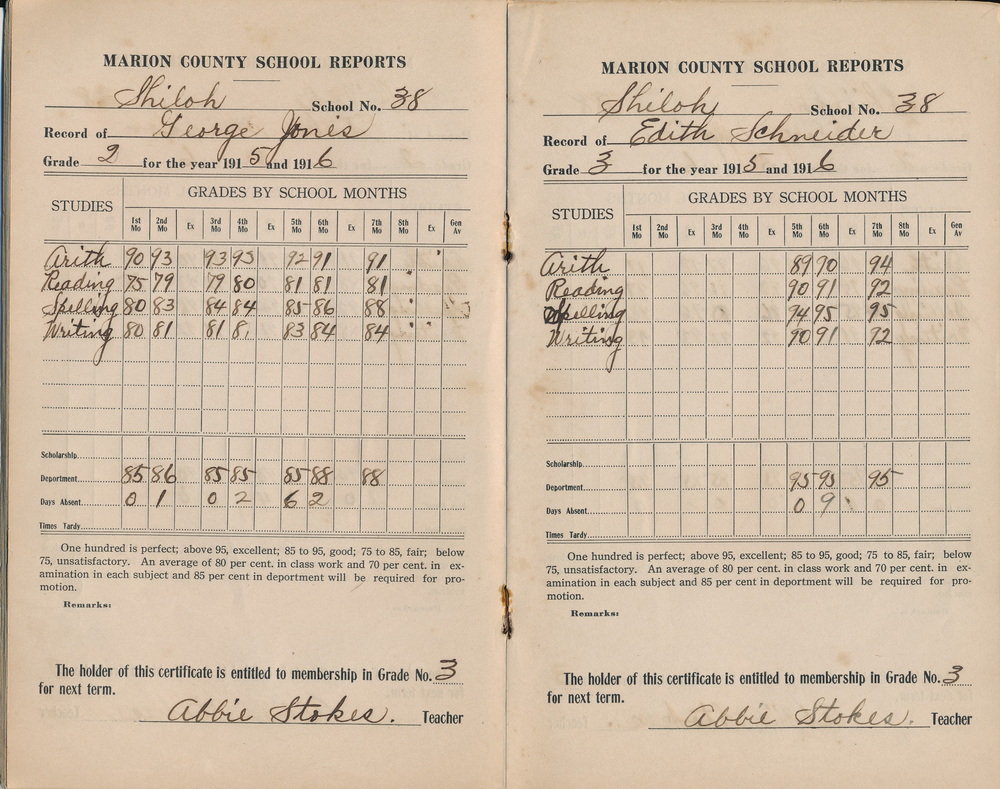 MARION COUNTY SCHOOL REPORTS
Shiloh School No. 38
Record of George Jones
Grade 2 for the year 1915 and 1916
STUDIES GRADES BY SCHOOL MONTHS
1st Mo 2nd Mo Ex 3rd Mo 4th Mo Ex 5th Mo 6th Mo Ex 7th Mo 8th Mo Ex Gen Av
Arith 90 93 93 93 92 91 91
Reading 75 79 79 80 81 81 81
Spelling 80 83 84 84 85 86 88
Writing 80 81 81 83 84 84
Scholarship
Department 85 86 85 85 85 88 88
Days Absent 0 1 0 2 6 2
Times Tardy
One hundred is perfect; above 95, excellent; 85 to 95, good; 75 to 85, fair; below
75, unsatisfactory. An average of 80 per cent. in class work and 70 per cent. in ex-
amination in each subject and 85 per cent in deportment will be required for pro-
motion.
Remarks:
The holder of this certificate is entitled to membership in Grade No. 3
for next term.
Abbie Stokes. Teacher
MARION COUNTY SCHOOL REPORTS
Shiloh School No. 38
Record of Edith Schneider
Grade 3 for the year 1915 and 1916
STUDIES GRADES BY SCHOOL MONTHS
1st Mo 2nd Mo Ex 3rd Mo 4th Mo Ex 5th Mo 6th Mo Ex 7th Mo 8th Mo Ex Gen Av
Arith 89 90 94
Reading 90 91 92
Spelling 94 95 95
Writing 90 91 92
Scholarship
Department 95 95 95
Days Absent 0 9
Times Tardy
One hundred is perfect; above 95, excellent; 85 to 95, good; 75 to 85, fair; below
75, unsatisfactory. An average of 80 per cent. in class work and 70 per cent. in ex-
amination in each subject and 85 per cent in deportment will be required for pro-
motion.
Remarks:
The holder of this certificate is entitled to membership in Grade No. 3
for next term.
Abbie Stokes. Teacher